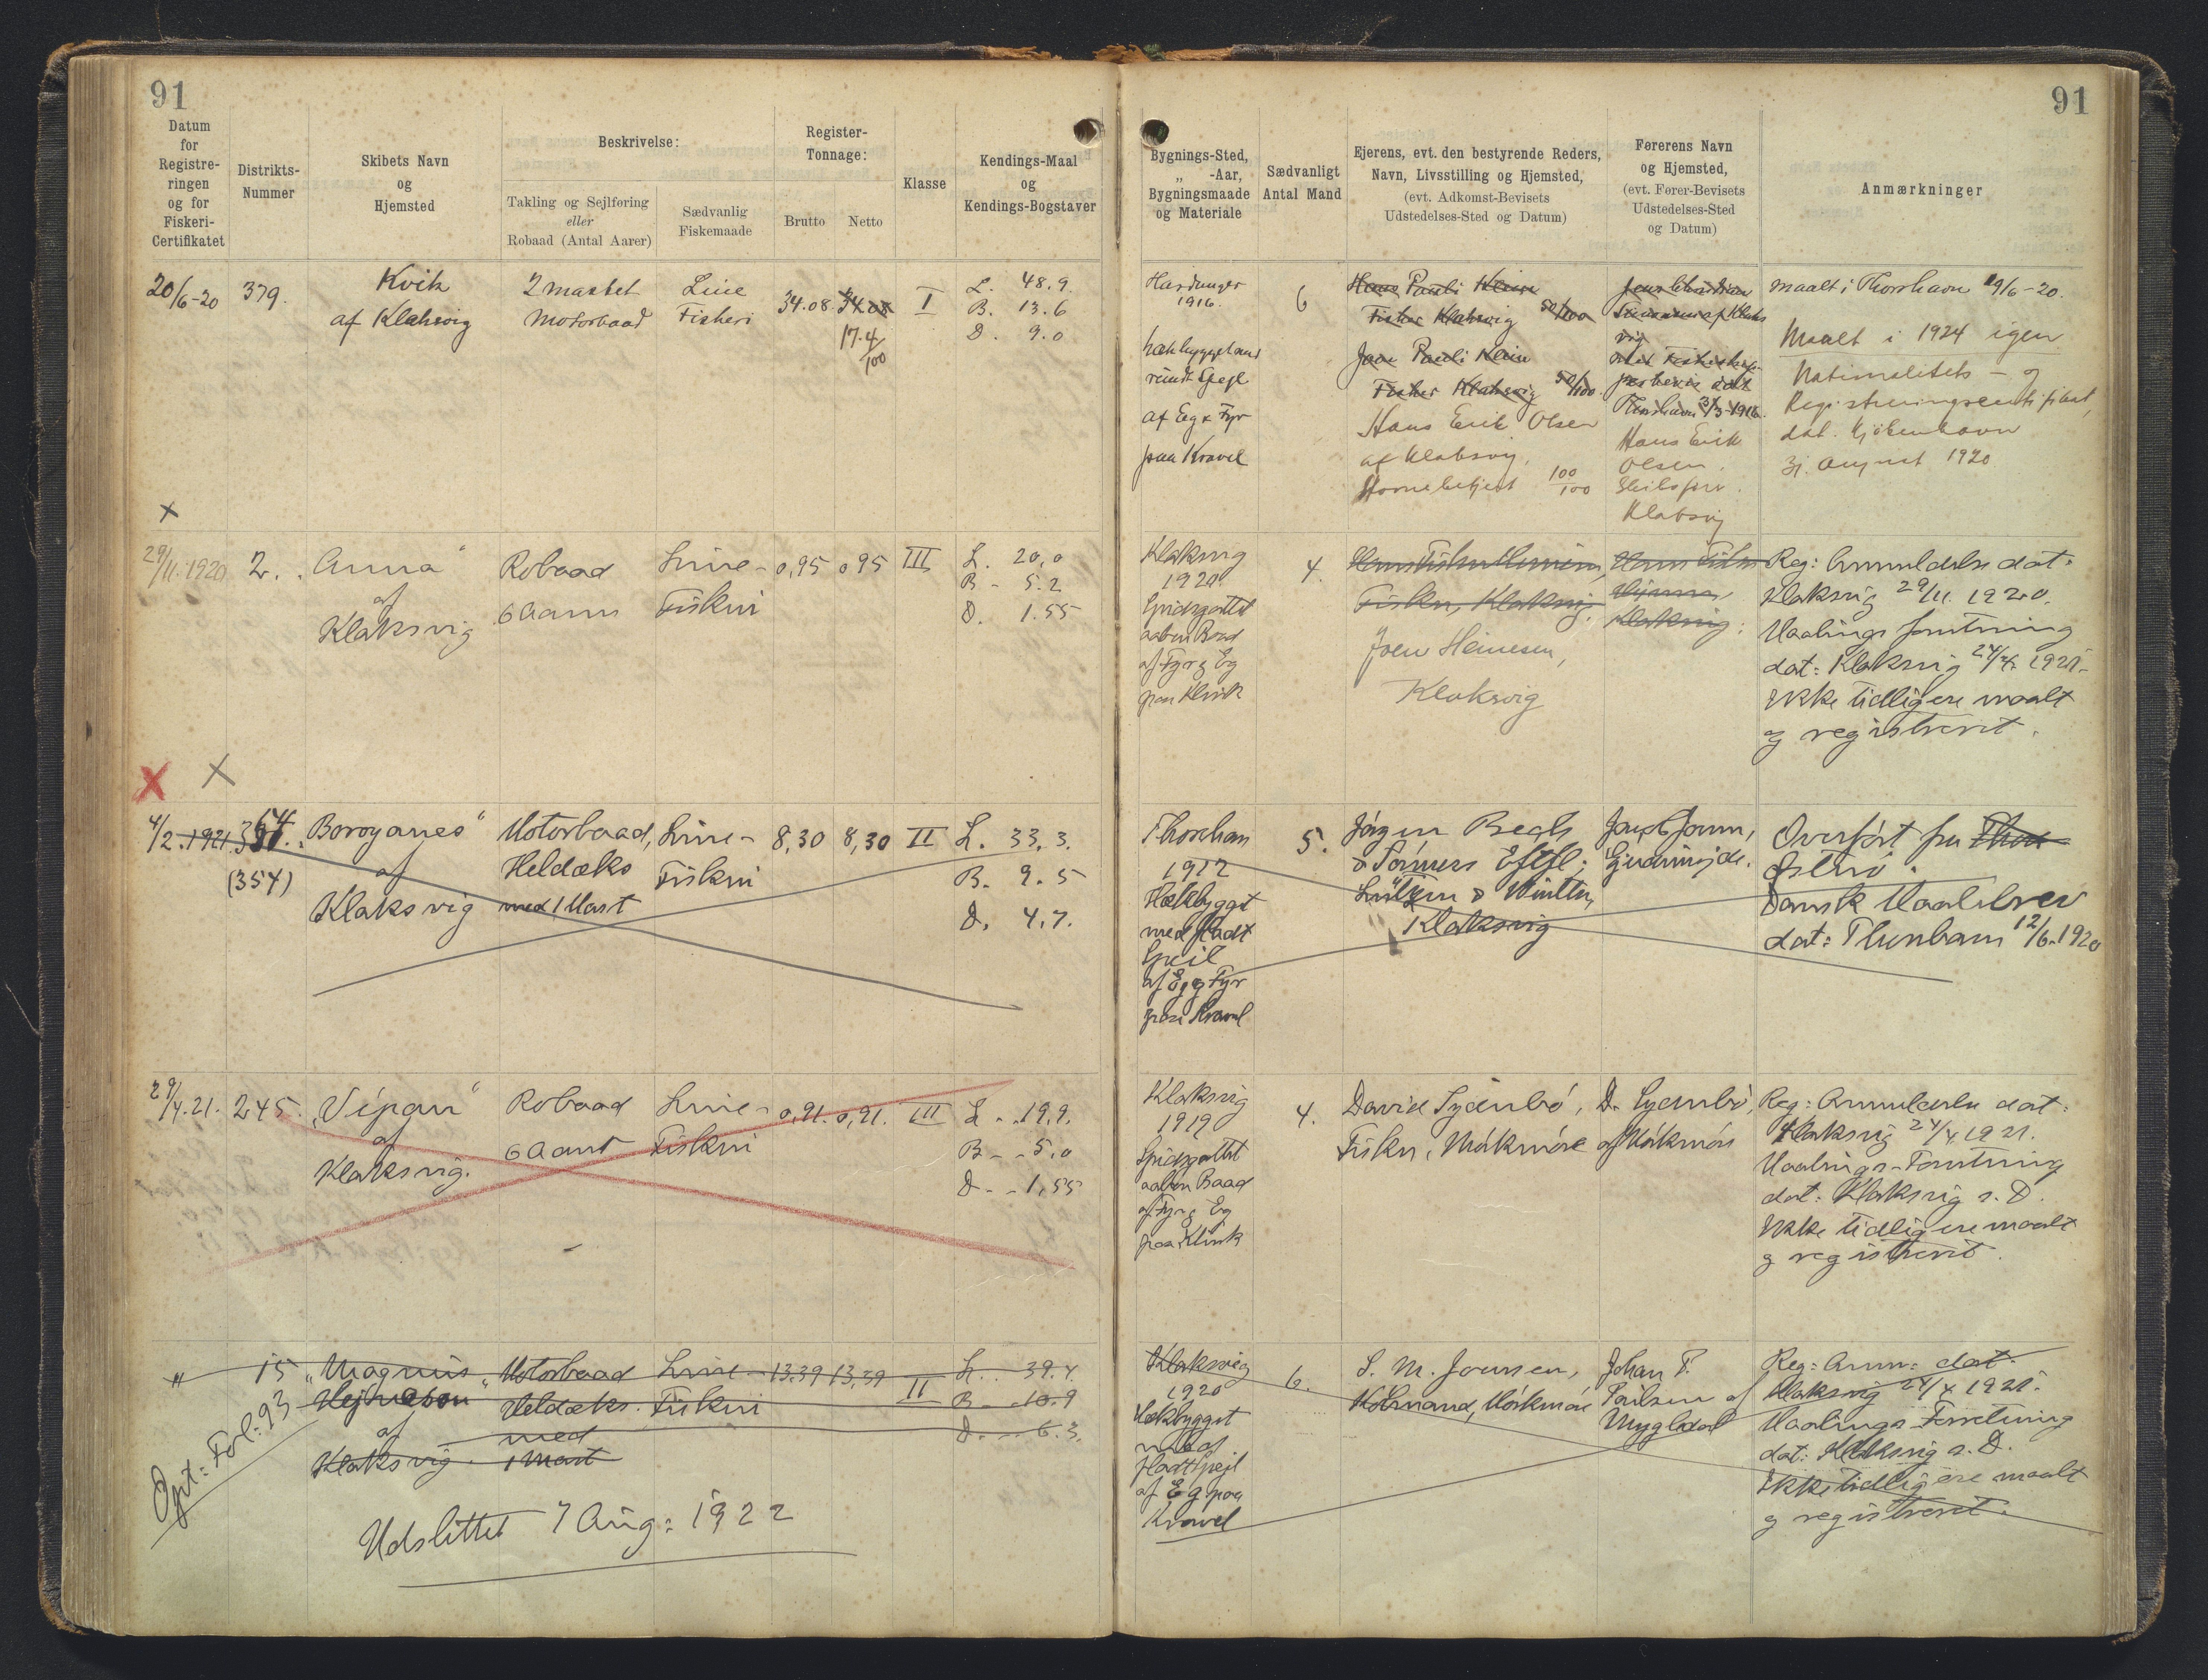 91
91
Datum
for
Registre-
ringen
og for
Fiskeri-
Certifikatet
Distrikts-
Nummer
Skibets Navn
og
Hjemsted
Beskrivelse:
Takling og Sejlføring
eller
Robaad (Antal Aarer)
Sædvanlig
Fiskemaade
Register-
Tonnage:
Brutto Netto
Klasse
Kendings-Maal
og
Kendings-Bogstaver
Bygnings-Sted,
„ -Aar,
Bygningsmaade
og Materiale
Sædvanligt
Antal Mand
Ejerens, evt. den bestyrende Reders,
Navn, Livsstilling og Hjemsted,
(evt. Adkomst-Bevisets
Udstedelses-Sted og Datum)
Førerens Navn
og Hjemsted,
(evt. Fører-Bevisets
Udstedelses-Sted
og Datum)
Anmærkninger
20/6-20
379.
Kvik
af Klaksvig
2 mastet
Motorbaad
Line
Fiskeri
34.08
34.08
17.4/100
I
L. 48.9.
B. 13.6
D. 9.0
Hardanger
1916.
rundt Spejl
af Eeg & Fyr
paa Kravel
6
Hans Pauli Klein
Fisker Klaksvig 50/100
Pauli Klein
Fisker Klaksvig 50/100.
Hans Erik Olsen
af Klaksvig.
100/100
Thorshavn 31/3-1916.
Hans Erik
Olsen.
Klaksvig
maalt i Thorshavn 19/6-20.
Maalt i 1924 igen
Nationalitets- og
Registreringscertifikat,
dat. Kjöbenhavn
31. August 1920
x
29/11.1920
2.
Anna"
af
Klaksvig
Robaad
6 Aarer
Line-
Fiskeri
0,95 0,95
III
L. 20,0
B - 5.2
D. 1.55
Klaksvig
1920.
Spidsgattet
aaben Baad
af Fyr & Eg
paa Klink
4.
Fisker, Klaksvig.
Klaksvig.
Joen Heinesen,
Klaksvig
Reg: Anmeldelse dat:
Klaksvig 29/11. 1920.
Maalings forretning
dat: Klaksvig 24/4. 1921.
Ikke tidligere maalt
og registreret.
x x
4/2.1921.
364.
(354)
"Boroyanes"
af
Klaksvig
Motorbaad,
Heldæks
med 1 Mast
Line-
Fiskeri
8,30 8,30
II
L. 33,3.
B. 9.5
D. 4,7.
Thorshavn
1912
Hækbygget
med fladt
Spejl
af Eg & Fyr
paa Kravel
5.
Jörgen Bech
& Sönners Eftfl:
& Winther,
Klaksvig
Overfört fra
Österö.
Dansk Maalebrev
dat: Thorshavn 12/6.1920
29/4.21.
245.
"Vípan"
af
Klaksvig.
Robaad
6 Aarer
Line-
Fiskeri
0,91. 0,91.
III
L - . 19,9.
B - - 5,0
D - - 1,55
Klaksvig
1919
Spidsgattet
aaben Baad
af Fyr & Eg
paa Klink
4.
David Sydenbó,
Fisker, Mórkmóre
D. Sydenbó,
af Mórkmóre
Reg: Anmeldelse dat:
Klaksvig 24/4 1921.
Maalings-Forretning
dat: Klaksvig s. D.
Ikke tidligere maalt
og registreret.
"
15
"Magnus
af
Klaksvig.
Motorbaad
Heldæks.
med
1 Mast
Line-
Fiskeri
13.39 13,39
II
L.. 39.4.
B - . 10.9
D - - 6.3.
Klaksvig
1920
Hækbygget
med
fladt Spejl
af Eg paa
Kravel
6.
S. M. Joensen,
Kóbmand, Mórkmóre
Johan P.
Poulsen af
Mygledal
Reg: Anm: dat:
Klaksvig 24/4 1921.
Maalings Forretning
dat: Klaksvig s. D.
Ikke tidligere maalt
og registreret.
Fol: 93
Udslettet 7 Aug: 1922